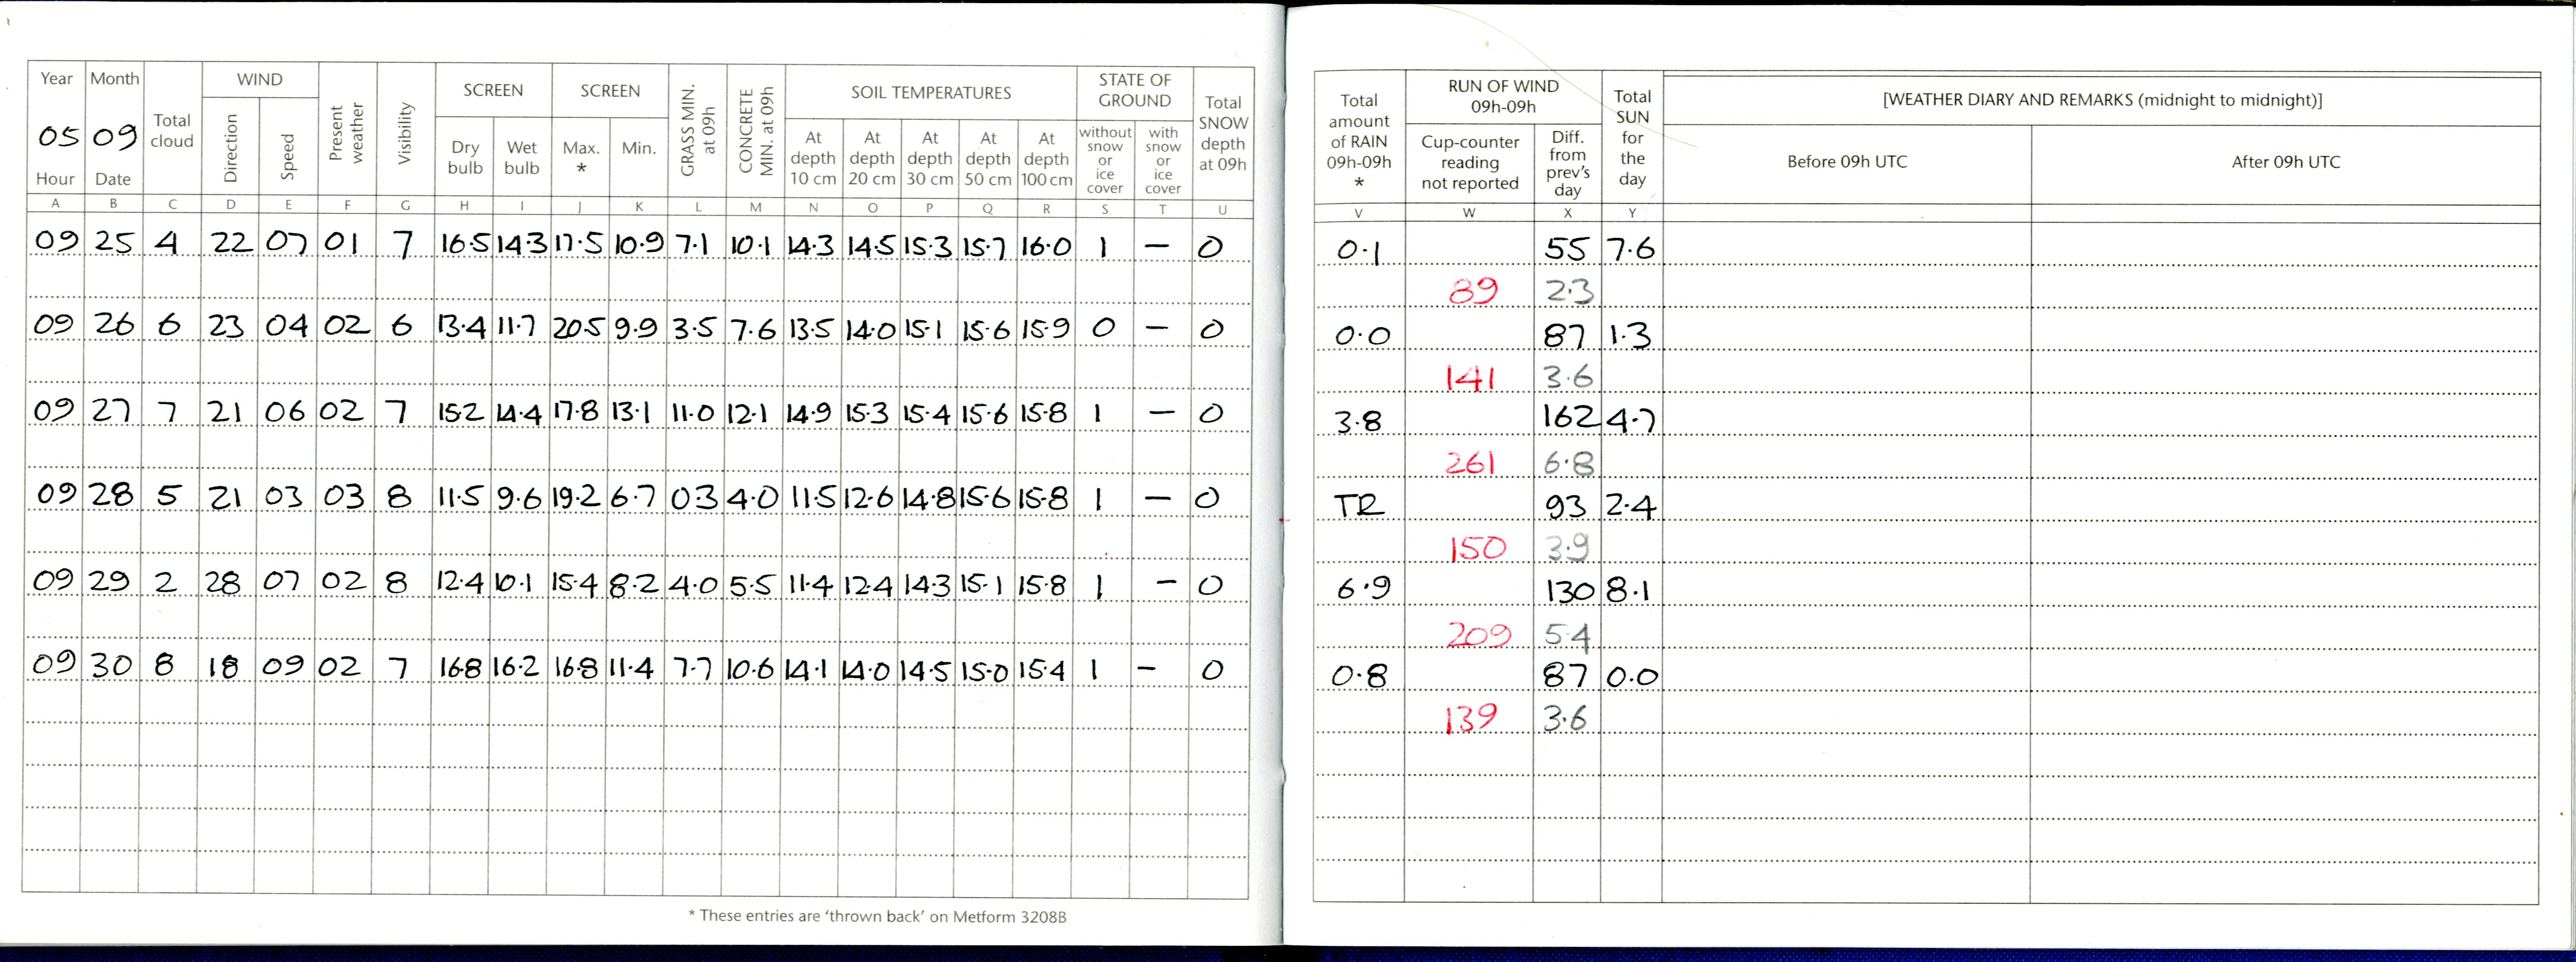 Year Month Total cloud WIND Present weather Visibility SCREEN SCREEN GRASS MIN. at 09h CONCRETE MIN. at 09h SOIL TEMPERATURES STATE OF GROUND Total SNOW depth at 09h
05 09 Direction Speed Dry bulb Wet bulb Max. * Min. At depth 10 cm At depth 20 cm At depth 30 cm At depth 50 cm At depth 100 cm without snow or ice cover with snow or ice cover
Hour Date
A B C D E F G H I J K L M N O P Q R S T U
09 25 4 22 07 01 7 16.5 14.3 17.5 10.9 7.1 10.1 14.3 14.5 15.3 15.7 16.0 1 – 0
09 26 6 23 04 02 6 13.4 11.7 20.5 9.9 3.5 7.6 13.5 14.0 15.1 15.6 15.9 0 – 0
09 27 7 21 06 02 7 15.2 14.4 17.8 13.1 11.0 12.1 14.9 15.3 15.4 15.6 15.8 1 – 0
09 28 5 21 03 03 8 11.5 9.6 19.2 6.7 0.3 4.0 11.5 12.6 14.8 15.6 15.8 1 – 0
09 29 2 28 07 02 8 12.4 10.1 15.4 8.2 4.0 5.5 11.4 12.4 14.3 15.1 15.8 1 – 0
09 30 8 18 09 02 7 16.8 16.2 16.8 11.4 7.7 10.6 14.1 14.0 14.5 15.0 15.4 1 – 0
* These entries are 'thrown back' on Metform 3208B
Total amount of RAIN 09h-09h * RUN OF WIND 09h-09h Total SUN for the day [WEATHER DIARY AND REMARKS (midnight to midnight)]
Cup-counter reading not reported Diff. from prev's day Before 09h UTC After 09h UTC
V W X Y
0.1 55 7.6
89 2.3
0.0 87 1.3
141 3.6
3.8 162 4.7
261 6.8
TR 93 2.4
150 3.9
6.9 130 8.1
209 5.4
0.8 87 0.0
139 3.6